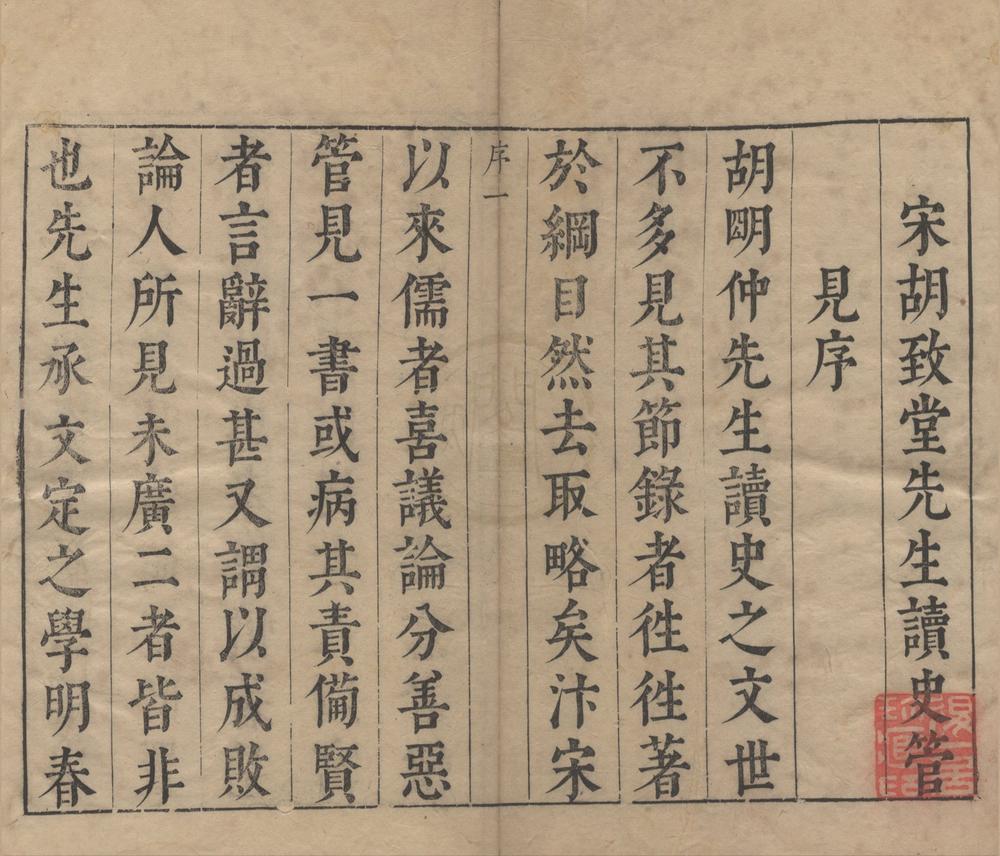 宋胡致堂先生讀史管
見序
胡明仲先生讀史之文世
不多見其節錄者徃徃著
於綱目然去取略矣汴宋
序一
以來儒者喜議論分善惡
管見一書或病其責備賢
者言辭過甚又謂以成敗
論人所見未廣二者皆非
也先生承文定之學明春